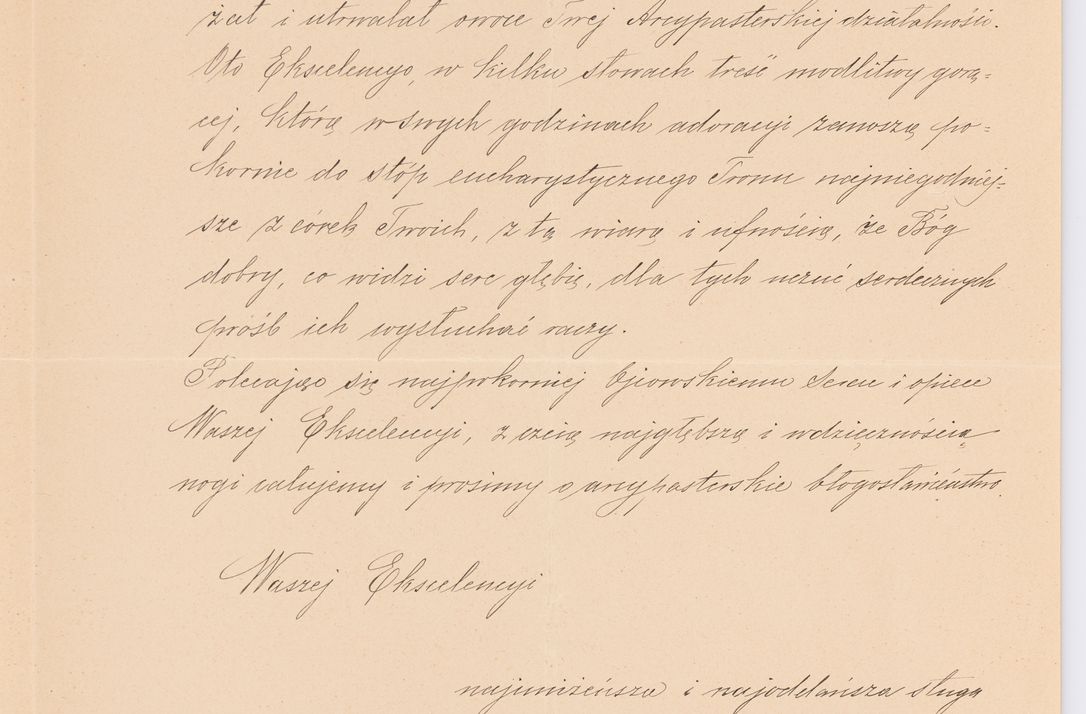 żał i utrwalał owoce Twej Arcypasterskiej działalności.
Oto Ekscelencyo, w kilku słowach treść modlitwy gorą=
cej, którą w swych godzinach adoracyi zanoszą po=
kornie do stóp eucharystycznego Tronu najniegodniej=
sze z córek Twoich, z tą wiarą i ufnością, że Bóg
dobry, co widzi serc głębię, dla tych uczuć serdecznych
próśb ich wysłuchać raczy.
Polecając się najpokorniej Ojcowskiemu Sercu i opiece
Waszej Ekscelencyi, z czcią najgłębszą i wdzięcznością
nogi całujemy i prosimy o arcypasterskie błogosławieństwo.
Waszej Ekscelencyi
najuniżeńsza i najoddańsza sługa